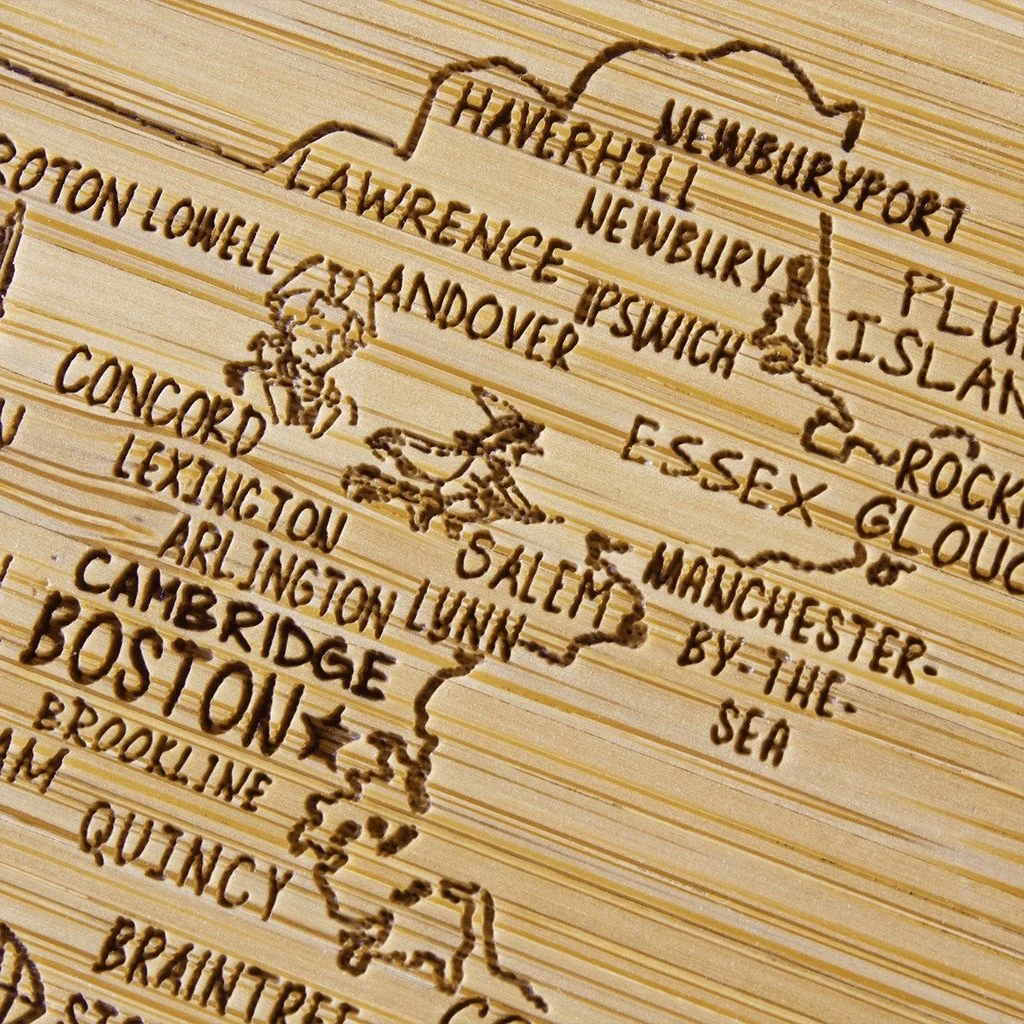 HAVERHILL
NEWBURYPORT
LAWRENCE
NEWBURY
LOWELL
ANDOVER
IPSWICH
CONCORD
ESSEX
LEXINGTON
ARLINGTON
SALEM
MANCHESTER-
BY-THE-
SEA
CAMBRIDGE
LYNN
BOSTON
BROOKLINE
QUINCY
BRAINTREE